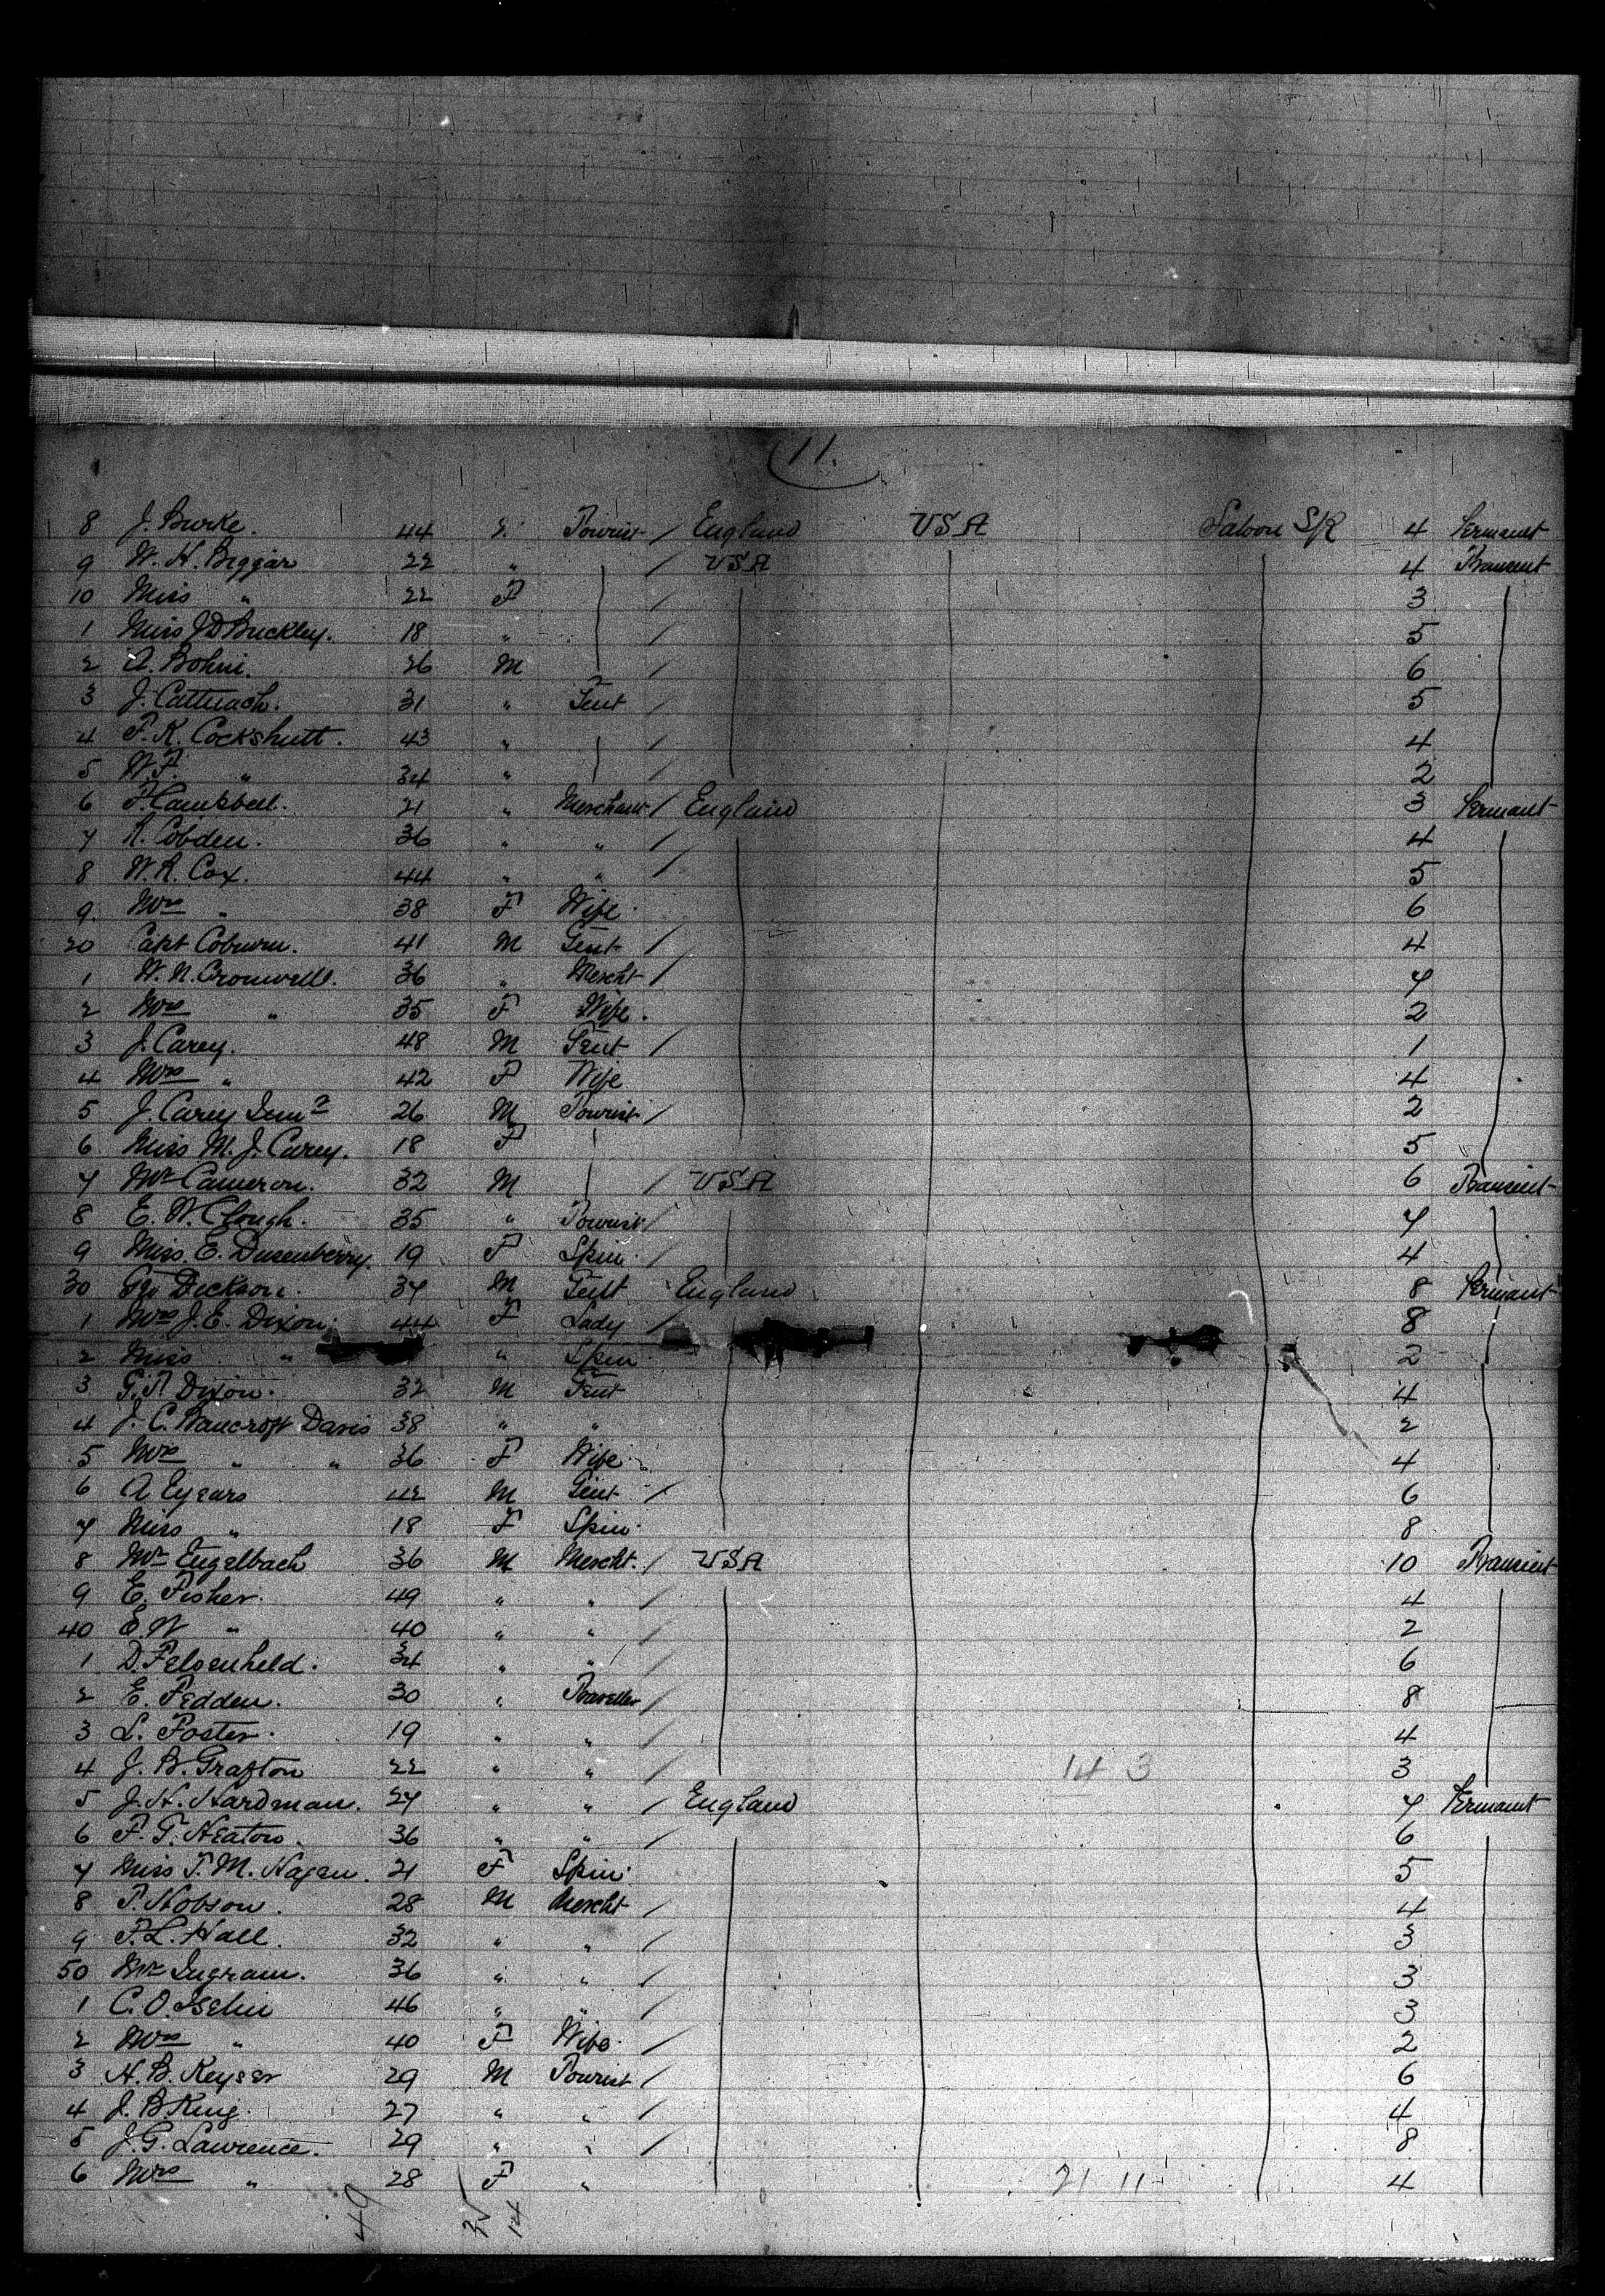 11.
8 J. Burke. 44 Tourist / England USA Saloon S/R 4 Permant
9 W. H. Beggar 22 " / USA 4 Transient
10 Miss " 22 F / 3
1 Miss J D Buckley. 18 " / 5
2 A. Bohni. 26 M / 6
3 J. Cattnach. 31 " Gent / 5
4 F. K. Cockshutt. 43 " / 4
5 W. F. " 34 " / 2
6 P. Campbell. 21 " Merchant / England 3 Permant
7 R. Cobden. 36 " " / 4
8 W. R. Cox. 44 " " / 5
9. Mrs " 38 F Wife. 6
20 Capt Coburn. 41 M Gent / 4
1 W. N. Cromwell. 36 " Mercht / 7
2 Mrs " 35 F Wife. 2
3 J. Carey. 48 M Gent / 1
4 Mrs " 42 F Wife 4
5 J. Carey Junr 26 M Tourist / 2
6 Miss M. J. Carey. 18 F 5
7 Mr Cameron. 32 M / USA 6 Transient
8 E. W. Clough. 35 " Tourist / 7
9 Miss E. Dusenberry. 19 F Spin. 4
30 Geo Dickson. 37 M Gent England 8 Permant
1 Mrs J. E. Dixon. 44 F Lady / 8
2 Miss " " Spin 2
3 G. T. Dixon. 32 M Gent 4
4 J. C. Bancroft Davis 38 " " 2
5 Mrs " " 36 F Wife. 4
6 A Eyears 42 M Gent / 6
7 Miss " 18 F Spin. 8
8 Mr Engelbach 36 M Mercht. / USA 10 Transient
9 E. Fisher. 49 " " / 4
40 E. W " 40 " " / 2
1 D. Felsenheld. 34 " " / 6
2 E. Fedden. 30 " Traveller / 8
3 L. Foster. 19 " " / 4
4 J. B. Grafton 22 " " / 14 3 3
5 J. H. Hardman. 27 " " / England 7 Permant
6 F. G. Heaton. 36 " " / 6
7 Miss T. M. Hagen. 21 F Spin. 5
8 T. Hobson. 28 M Mercht / 4
9 F. L. Hall. 32 " " / 3
50 Mr Ingram. 36 " " / 3
1 C. O. Iselin 46 " " / 3
2 Mrs " 40 F Wife. / 2
3 H. B. Keyser 29 M Tourist / 6
4 J. B. King. 27 " " / 4
5 J. G. Lawrence. 29 " " / 8
6 Mrs " 28 F " 21 11 4
49 35 14